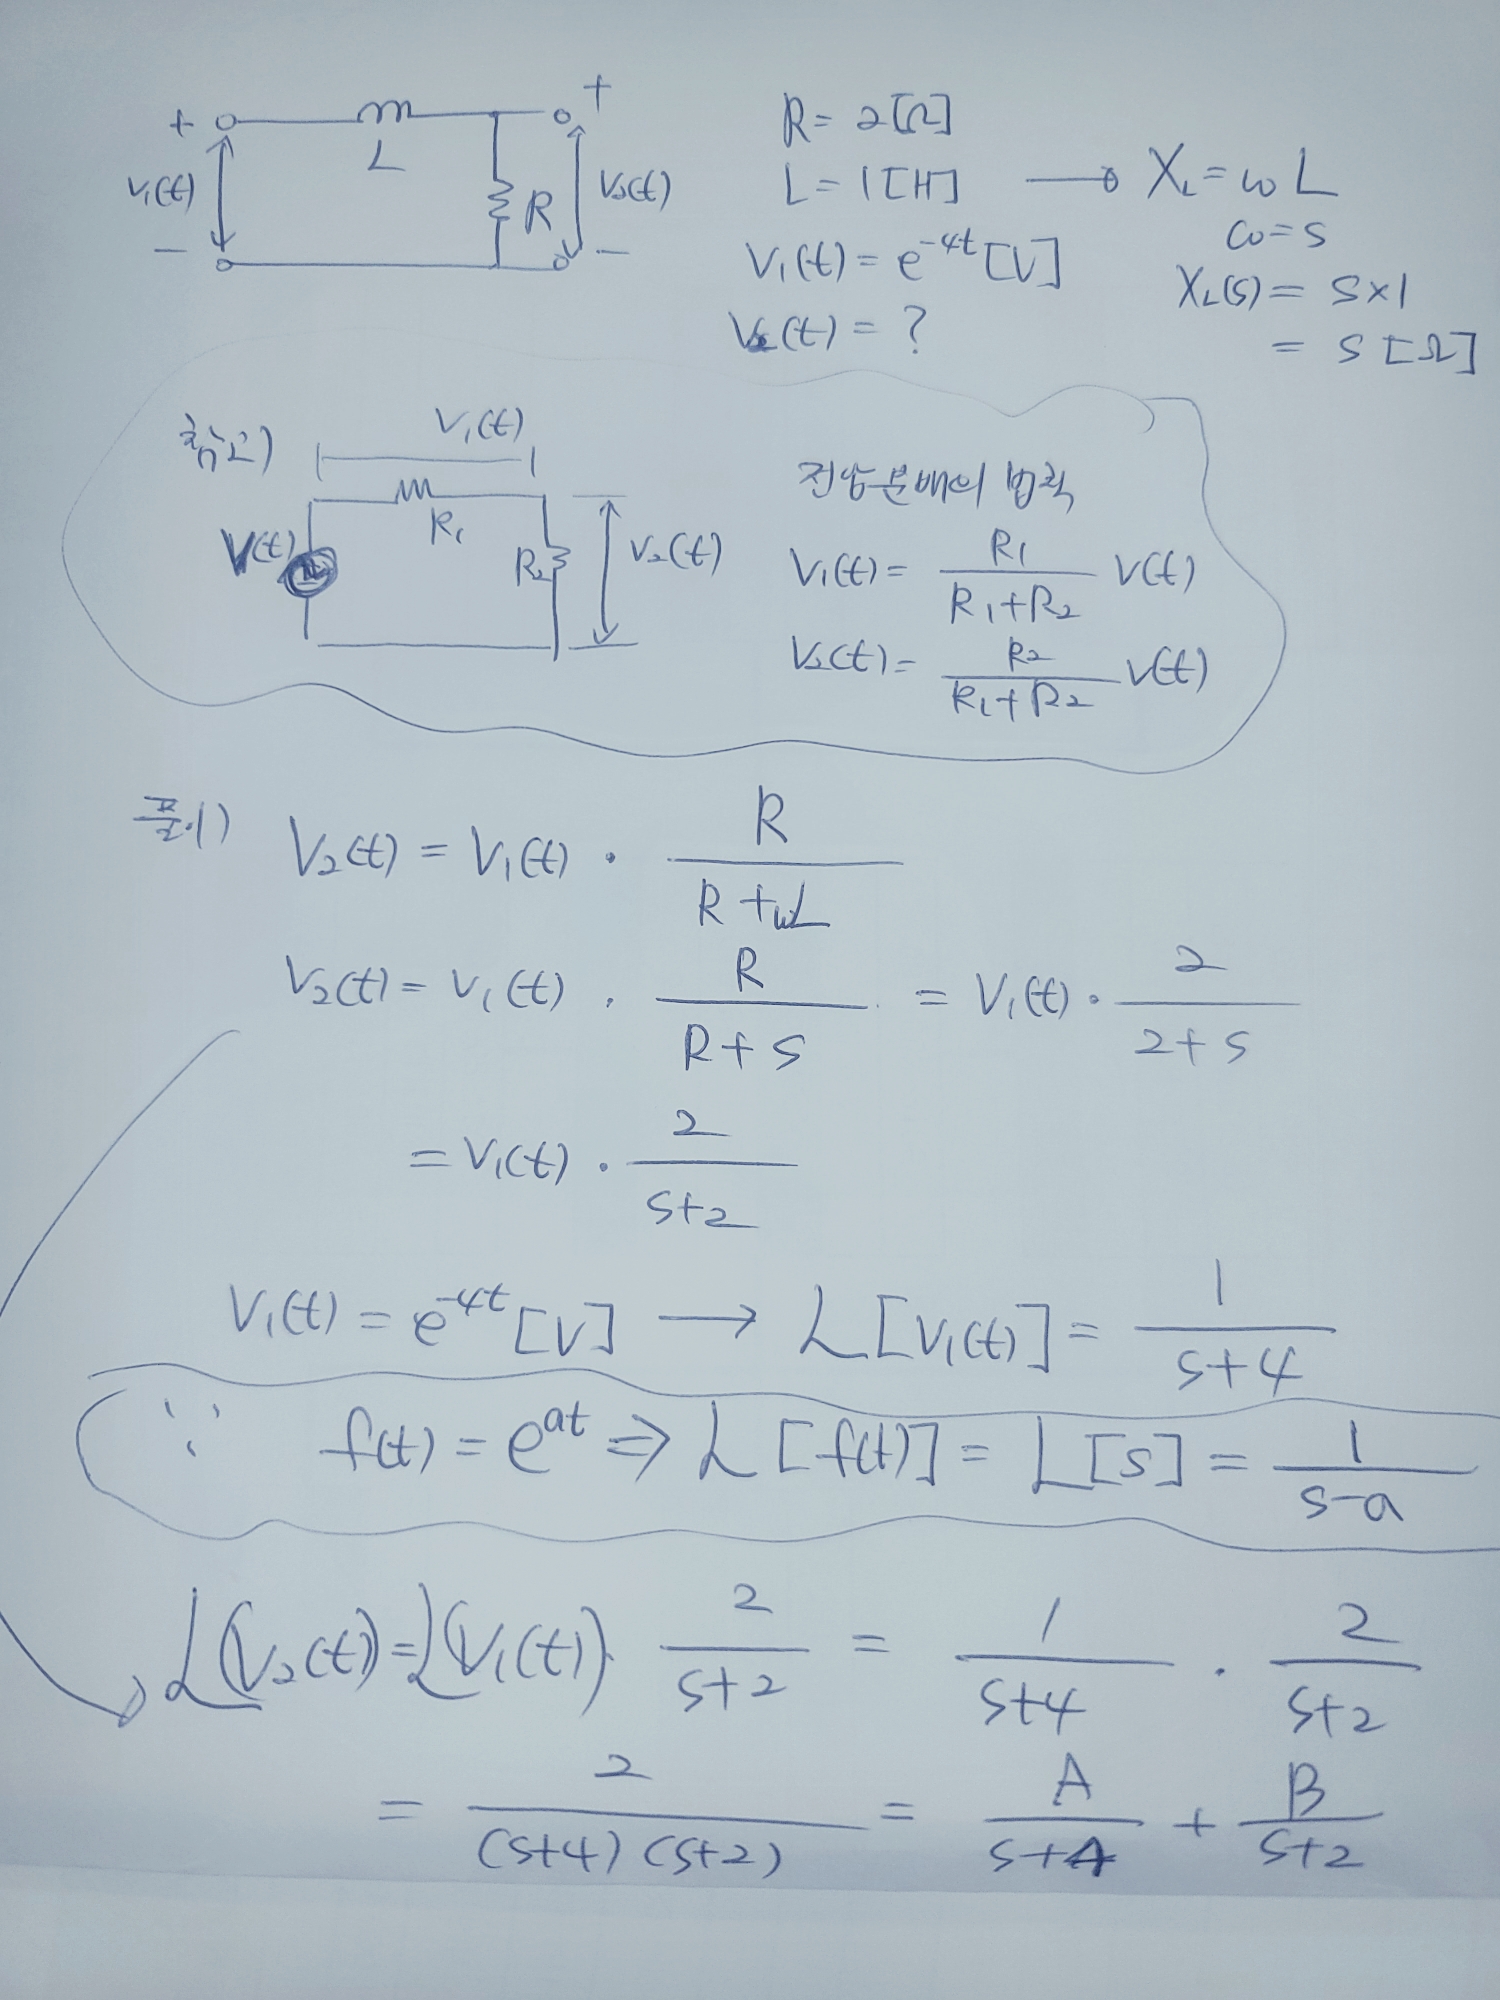 + L +
V₁(t) R V₂(t)
− −
R = 2[Ω]
L = 1[H] → X_L = ωL
ω = s
V₁(t) = e^{-4t} [V] X_L(s) = s×1
V₂(t) = ? = s [Ω]
참고) V₁(t)
V(t) R₁ R₂ V₂(t)
전압분배의 법칙
V₁(t) = R₁/(R₁+R₂) V(t)
V₂(t) = R₂/(R₁+R₂) V(t)
풀이) V₂(t) = V₁(t) · R/(R+ωL)
V₂(t) = V₁(t) · R/(R+s) = V₁(t) · 2/(2+s)
= V₁(t) · 2/(s+2)
V₁(t) = e^{-4t} [V] → L[V₁(t)] = 1/(s+4)
∵ f(t) = e^{at} ⇒ L[f(t)] = L[s] = 1/(s-a)
L(V₂(t)) = L(V₁(t)) · 2/(s+2) = 1/(s+4) · 2/(s+2)
= 2/((s+4)(s+2)) = A/(s+4) + B/(s+2)